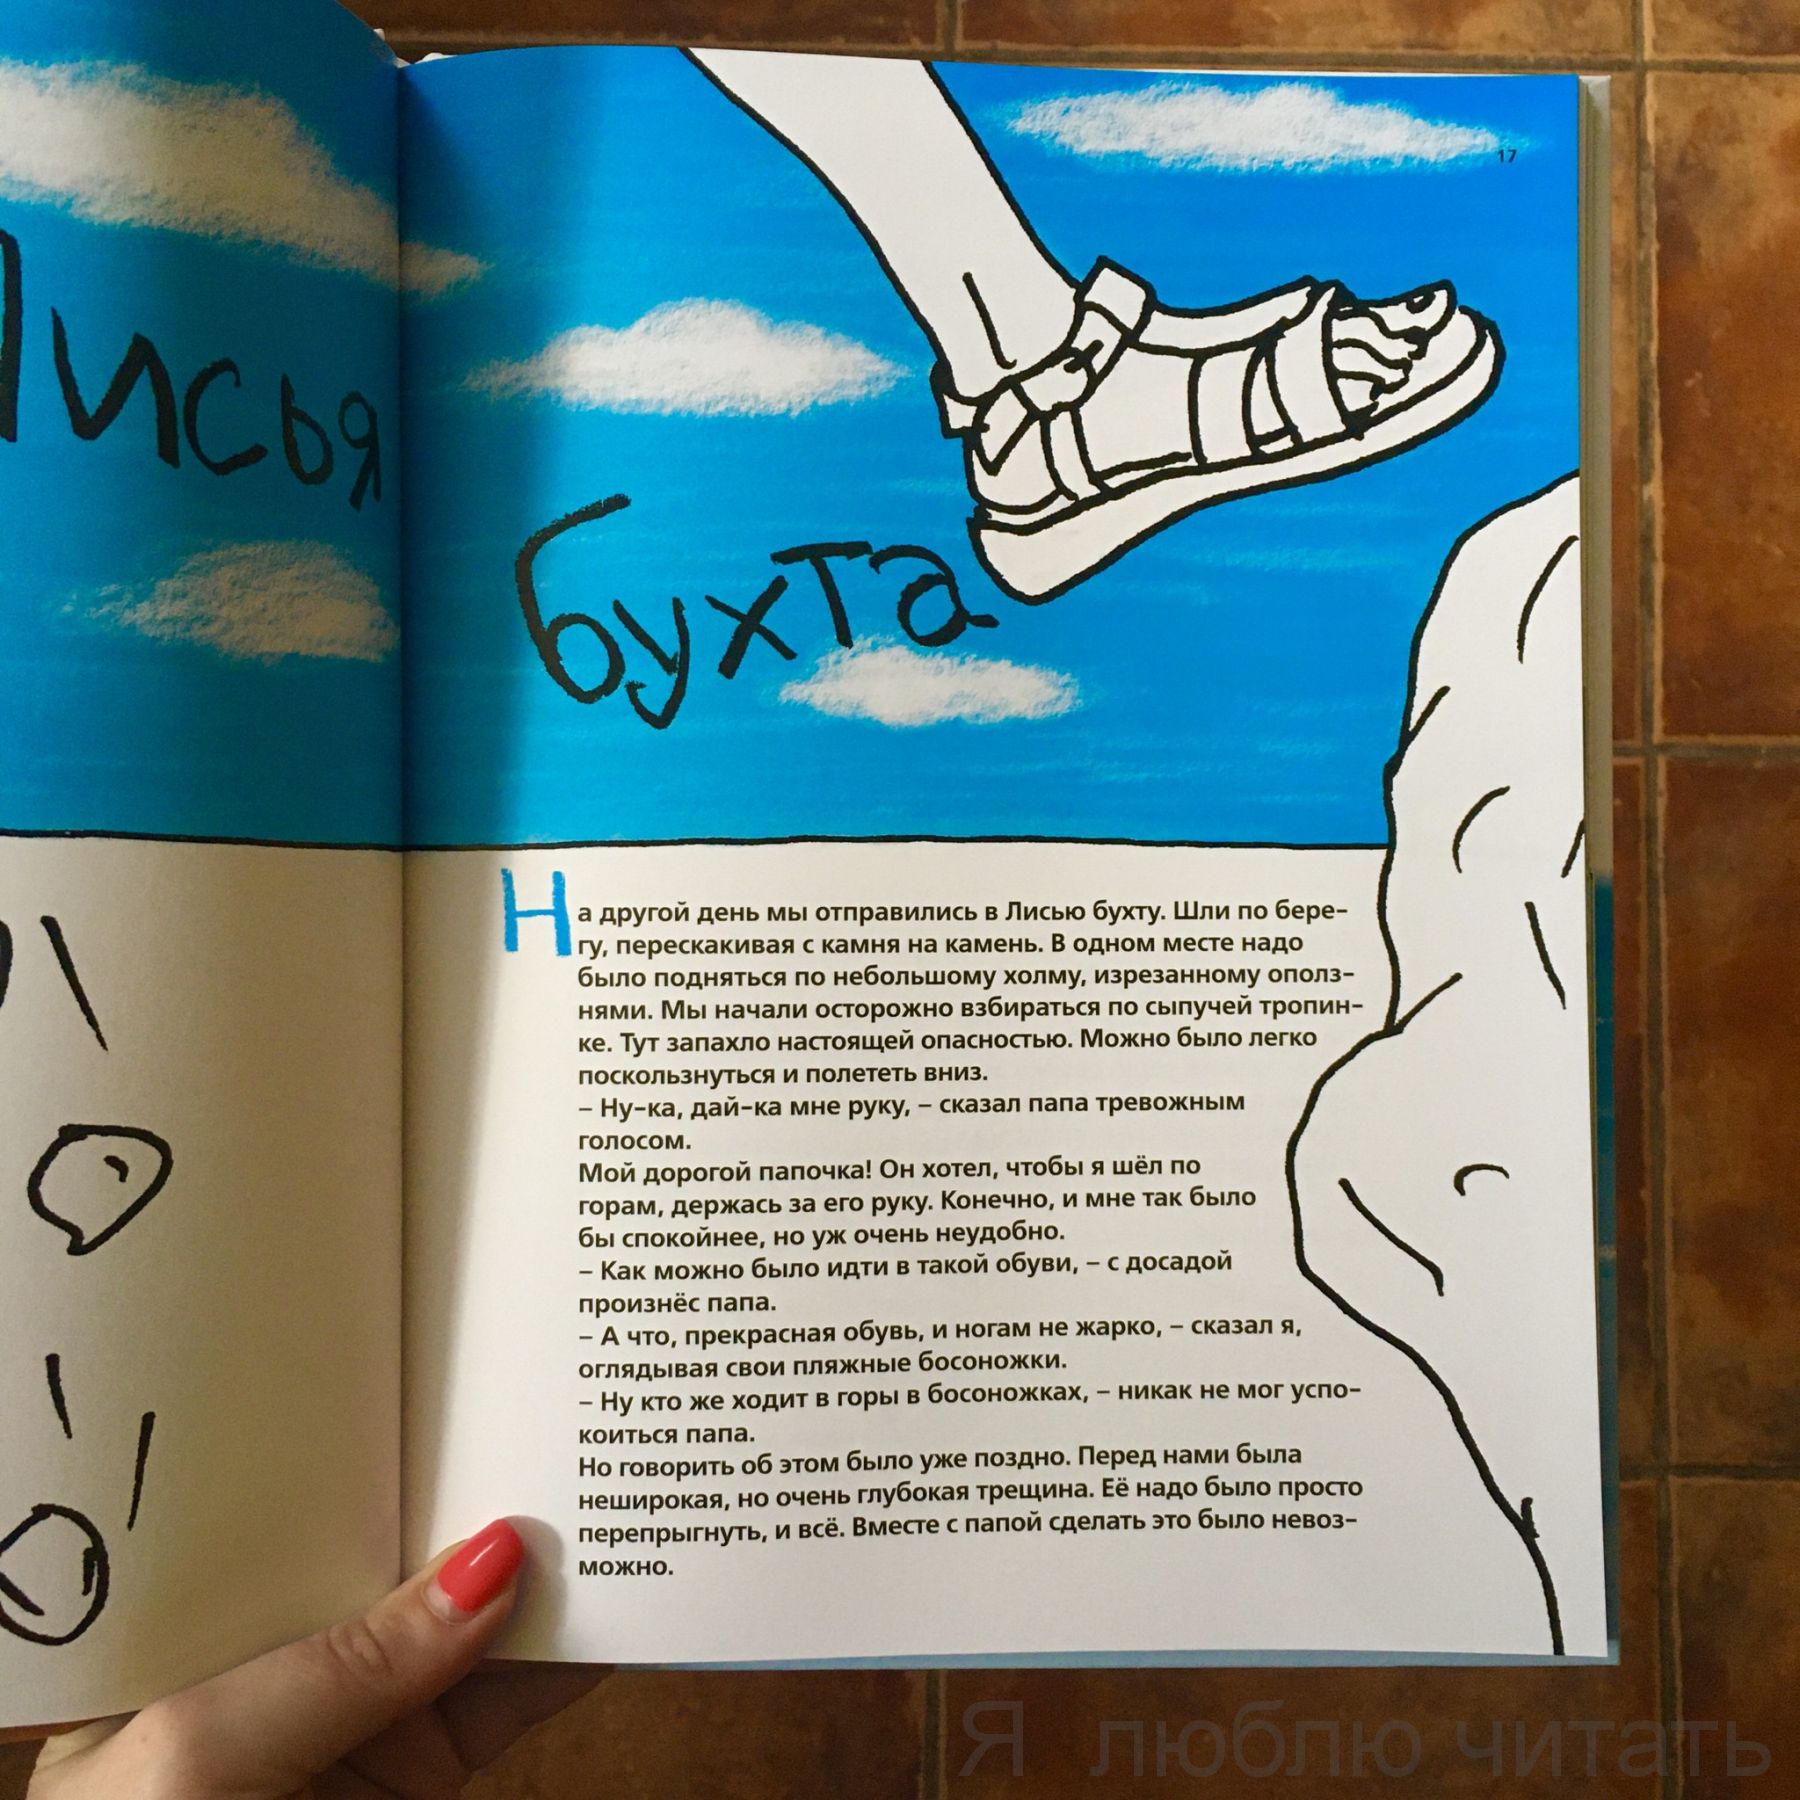 Лисья
бухта
17
На другой день мы отправились в Лисью бухту. Шли по бере-
гу, перескакивая с камня на камень. В одном месте надо
было подняться по небольшому холму, изрезанному ополз-
нями. Мы начали осторожно взбираться по сыпучей тропин-
ке. Тут запахло настоящей опасностью. Можно было легко
поскользнуться и полететь вниз.
– Ну-ка, дай-ка мне руку, – сказал папа тревожным
голосом.
Мой дорогой папочка! Он хотел, чтобы я шёл по
горам, держась за его руку. Конечно, и мне так было
бы спокойнее, но уж очень неудобно.
– Как можно было идти в такой обуви, – с досадой
произнёс папа.
– А что, прекрасная обувь, и ногам не жарко, – сказал я,
оглядывая свои пляжные босоножки.
– Ну кто же ходит в горы в босоножках, – никак не мог успо-
коиться папа.
Но говорить об этом было уже поздно. Перед нами была
неширокая, но очень глубокая трещина. Её надо было просто
перепрыгнуть, и всё. Вместе с папой сделать это было невоз-
можно.
Я люблю читать